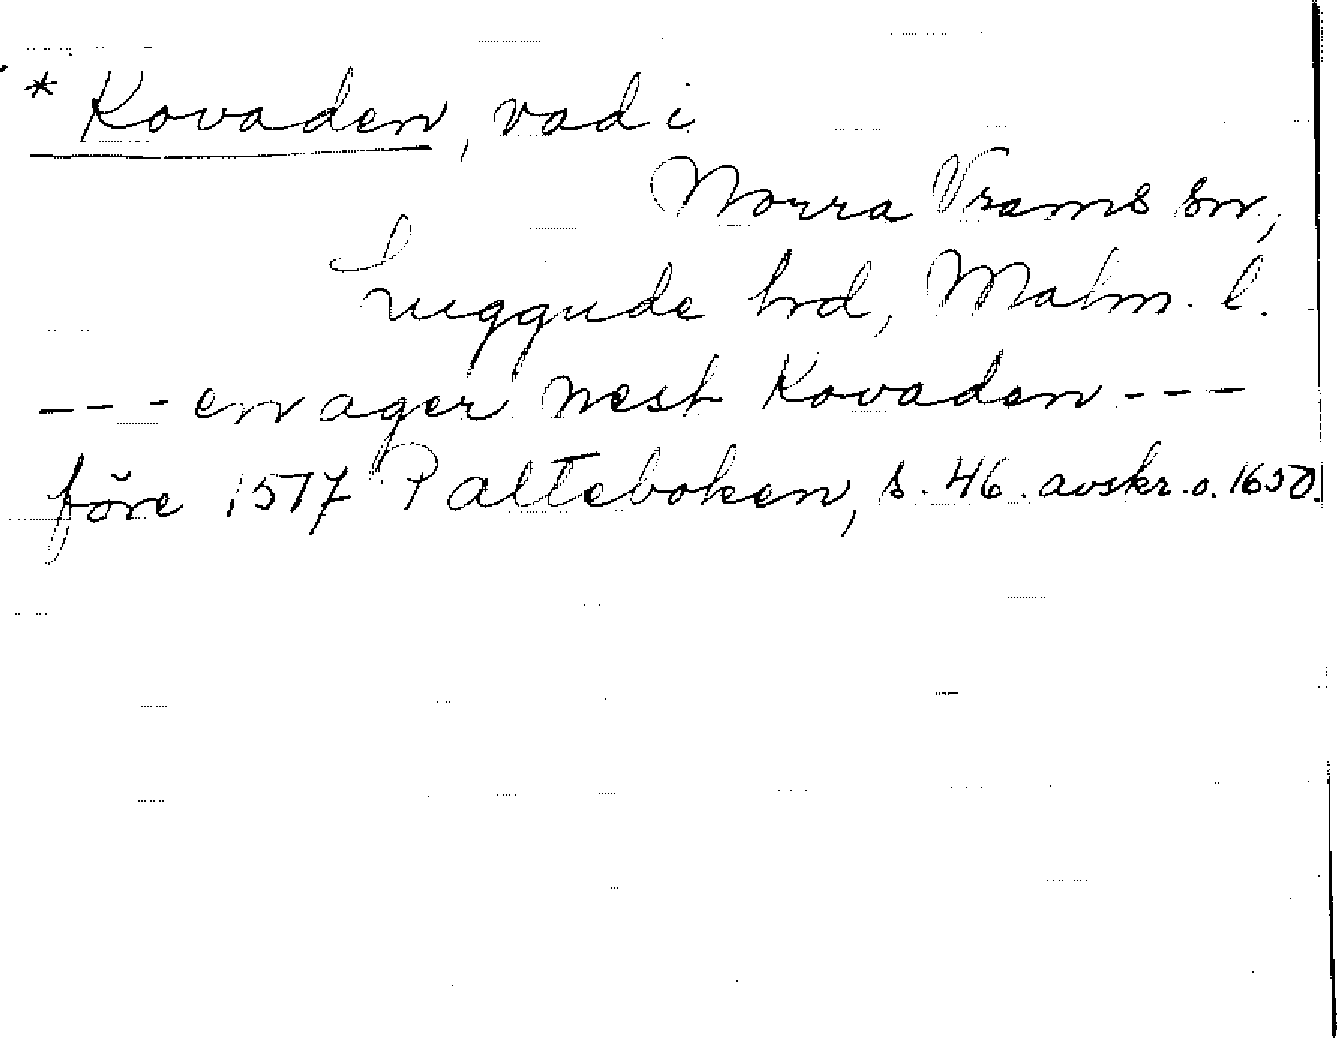 * Kovaden, vad i
Norra Vrams sn,
Luggude hd, Malm. l.
--- en ager nest Kovaden ---
före 1517 Palteboken, s. 46. avskr. o. 1650.